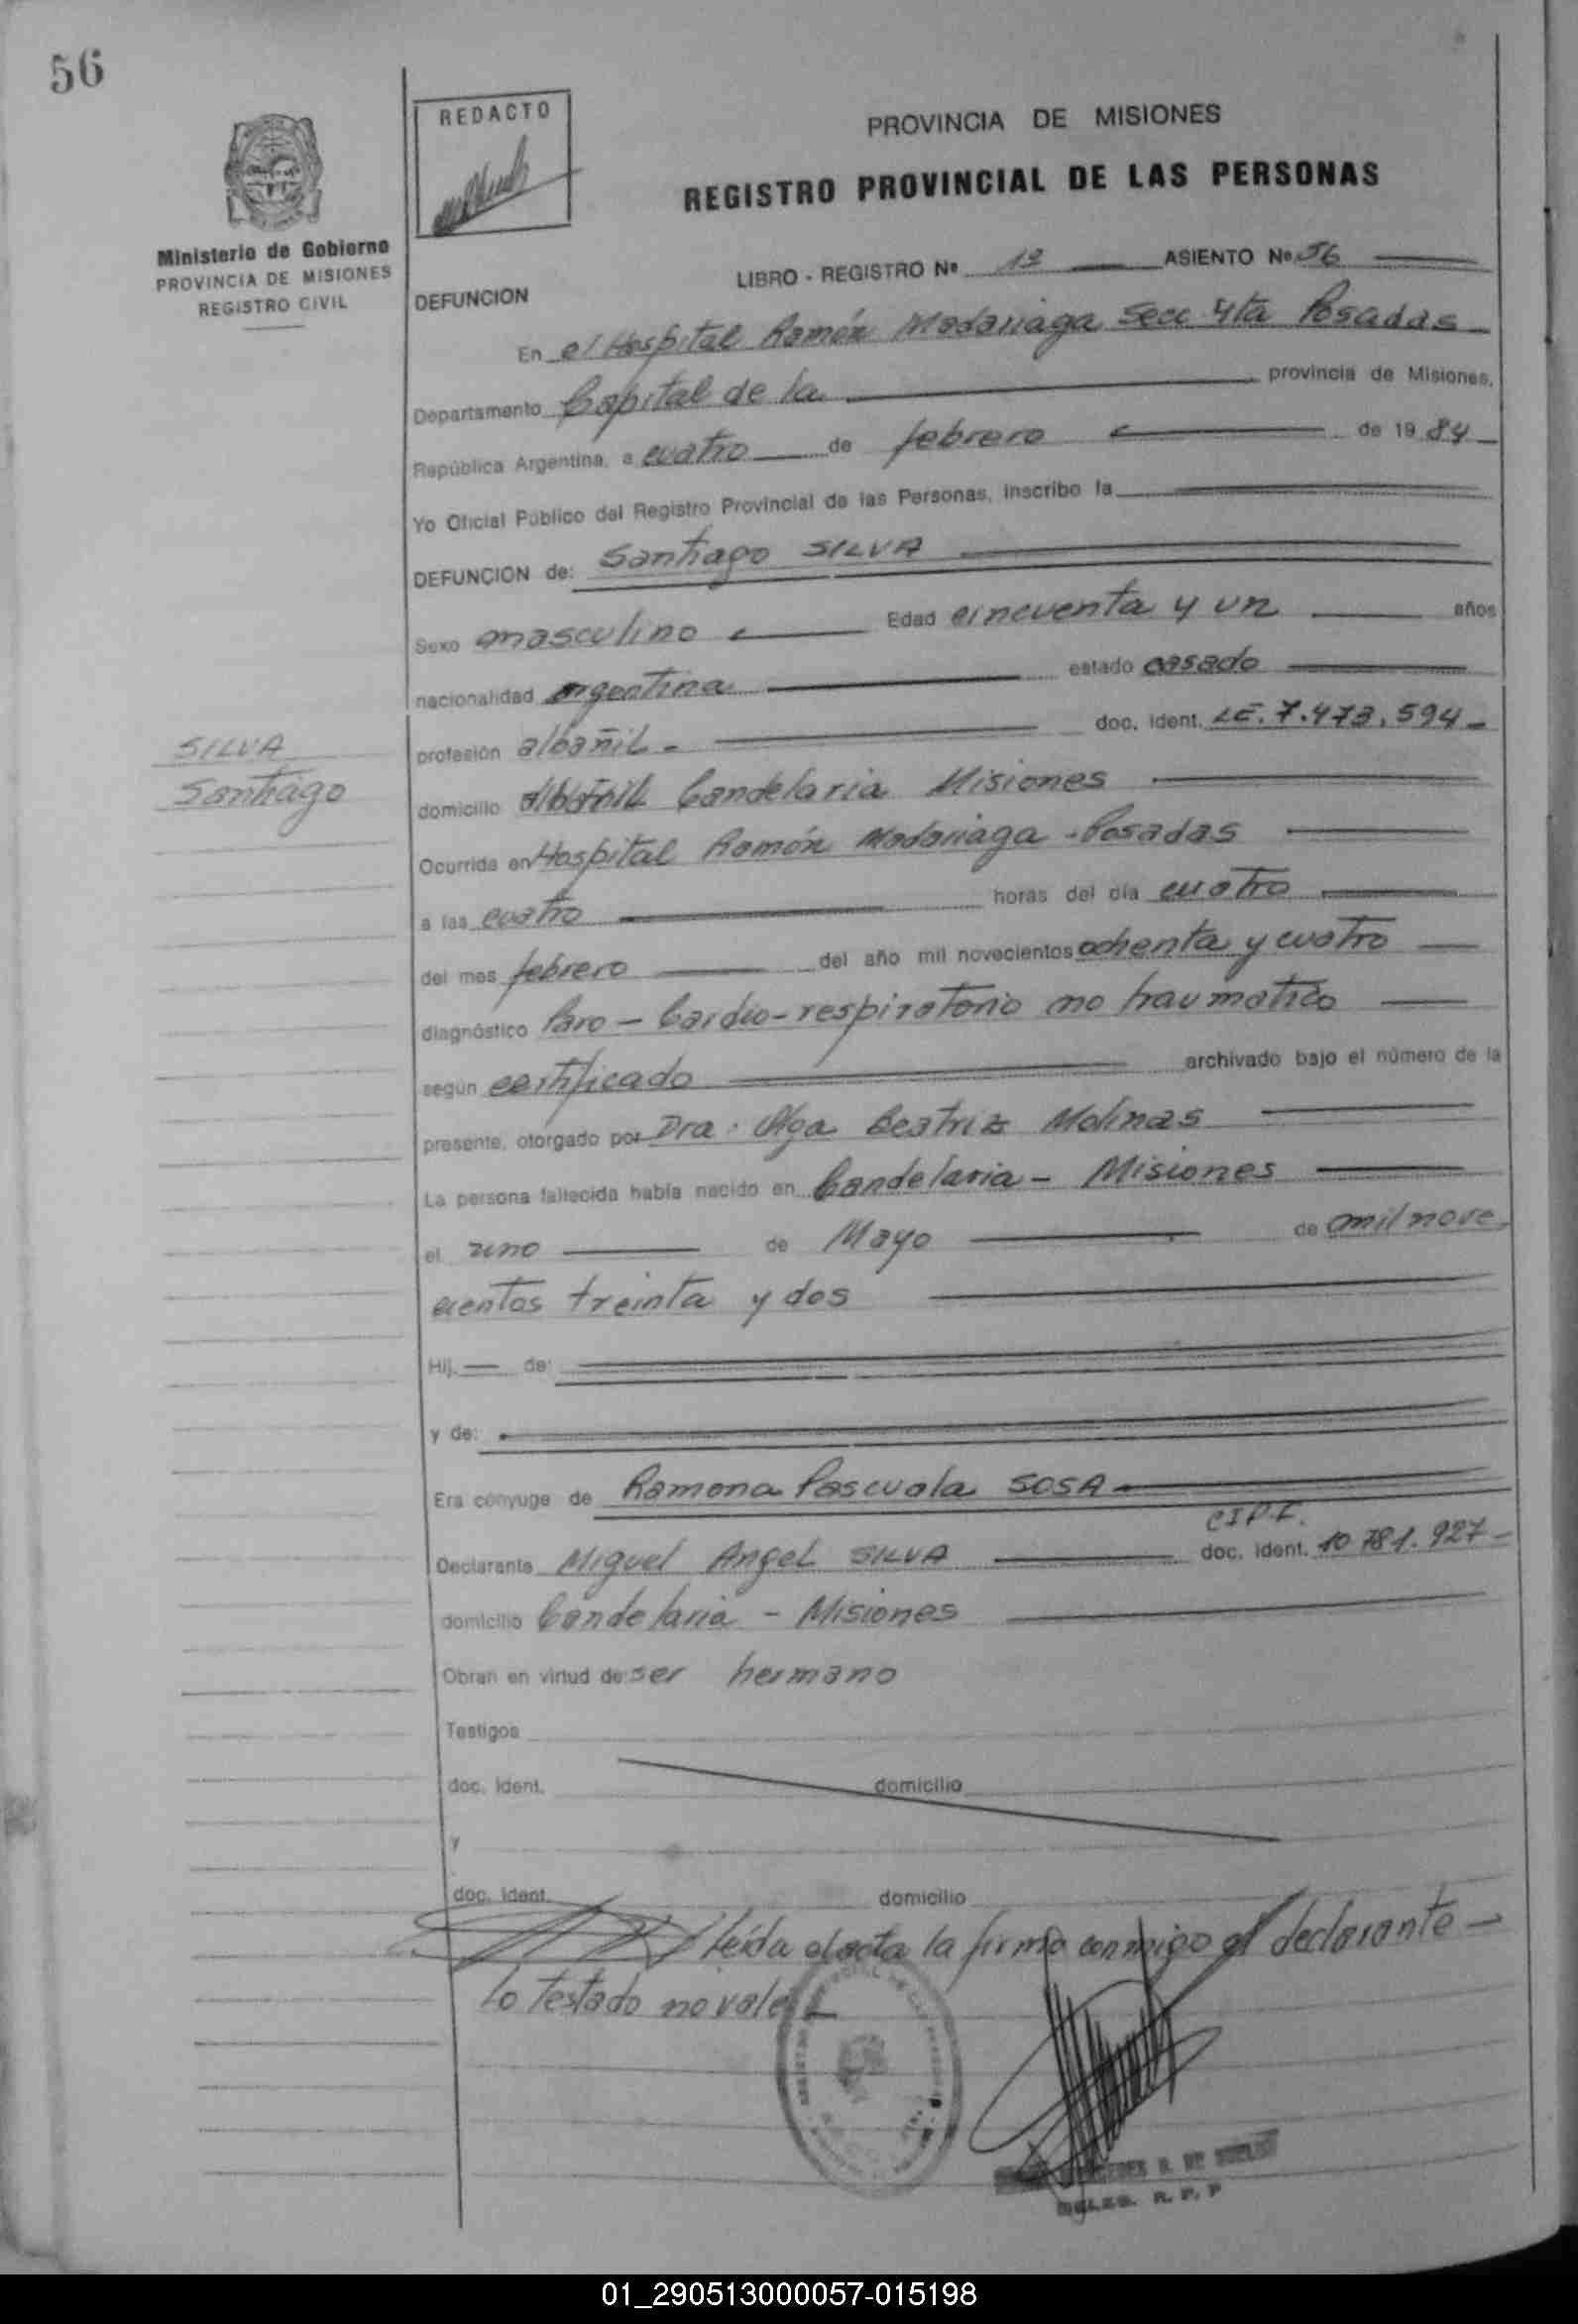 56
REDACTO
PROVINCIA DE MISIONES
REGISTRO PROVINCIAL DE LAS PERSONAS
Ministerio de Gobierno
PROVINCIA DE MISIONES
REGISTRO CIVIL
LIBRO - REGISTRO Nº ASIENTO Nº 56
DEFUNCION
En el Hospital Ramón Madariaga Secc 4ta Posadas
Departamento Capital de la provincia de Misiones,
República Argentina, a cuatro de febrero de 1984
Yo Oficial Público del Registro Provincial de las Personas, inscribo la
DEFUNCION de: Santiago SILVA
Sexo masculino Edad cincuenta y un años
nacionalidad argentina estado casado
SILVA
Santiago
profesión albañil - doc. ident. LE. 7.473.594-
domicilio albañil Candelaria Misiones
Ocurrida en Hospital Ramón Madariaga - Posadas
a las cuatro horas del día cuatro
del mes febrero del año mil novecientos ochenta y cuatro
diagnóstico Paro - Cardio-respiratorio no traumatico
según certificado archivado bajo el número de la
presente, otorgado por Dra. Olga Beatriz Molinas
La persona fallecida había nacido en Candelaria - Misiones
el uno de Mayo de mil nove
cientos treinta y dos
Hij. de:
y de:
Era cónyuge de Ramona Pascuala SOSA
Declarante Miguel Angel SILVA doc. ident. 10 781.927-
domicilio Candelaria - Misiones
Obran en virtud de: ser hermano
Testigos
doc. ident. domicilio
y
doc. ident. domicilio
leída el acta la firma conmigo el declarante -
Lo testado no vale -
DELEG. R. P. P
01_290513000057-015198